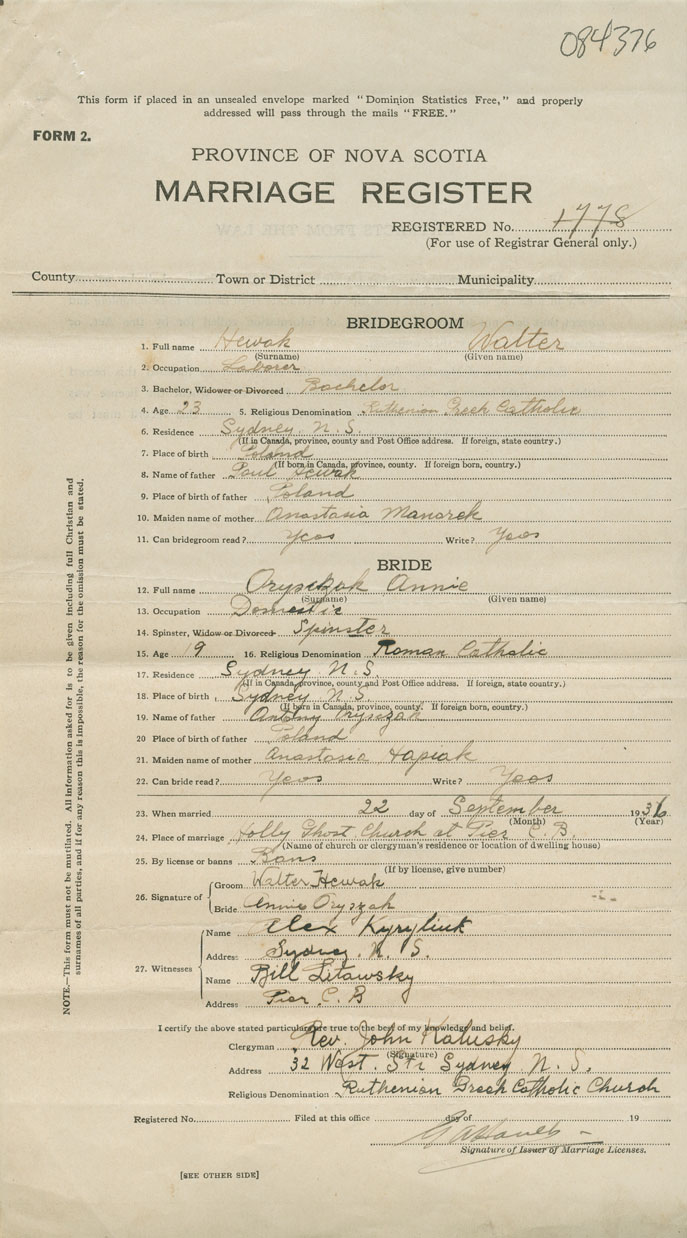 084376
This form if placed in an unsealed envelope marked "Dominion Statistics Free," and properly
addressed will pass through the mails "FREE."
FORM 2.
PROVINCE OF NOVA SCOTIA
MARRIAGE REGISTER
REGISTERED No. 1778
(For use of Registrar General only.)
County Town or District Municipality
BRIDEGROOM
1. Full name Hewak Walter
(Surname) (Given name)
2. Occupation Laborer
3. Bachelor, Widower or Divorced Bachelor
4. Age 23 5. Religious Denomination Ruthenion Greek Catholic
6. Residence Sydney N. S.
(If in Canada, province, county and Post Office address. If foreign, state country.)
7. Place of birth Poland
(If born in Canada, province, county. If foreign born, country.)
8. Name of father Paul Hewak
9. Place of birth of father Poland
10. Maiden name of mother Anastasia Manorek
11. Can bridegroom read? Yeas Write? Yeas
BRIDE
12. Full name Oryszak Annie
(Surname) (Given name)
13. Occupation Domestic
14. Spinster, Widow or Divorced Spinster
15. Age 19 16. Religious Denomination Roman Catholic
17. Residence Sydney N. S.
(If in Canada, province, county and Post Office address. If foreign, state country.)
18. Place of birth Sydney N. S.
(If born in Canada, province, county. If foreign born, country.)
19. Name of father Antony Oryszak
20. Place of birth of father Poland
21. Maiden name of mother Anastasia Hapiak
22. Can bride read? Yeas Write? Yeas
23. When married 22 day of September 1936
(Month) (Year)
24. Place of marriage Holly Ghost Church at Pier C. B.
(Name of church or clergyman's residence or location of dwelling house)
25. By license or banns Bans
(If by license, give number)
26. Signature of Groom Walter Hewak
Bride Annie Oryszak
27. Witnesses
Name Alex Kyryliuk
Address Sydney N. S.
Name Bill Litawsky
Address Pier C. B
I certify the above stated particulars are true to the best of my knowledge and belief.
Clergyman Rev. John Kalusky
(Signature)
Address 32 West. Str Sydney N. S.
Religious Denomination Ruthenian Greek Catholic Church
Registered No. Filed at this office day of 19
Signature of Issuer of Marriage Licenses.
[SEE OTHER SIDE]
NOTE.—This form must not be mutilated. All information asked for is to be given including full Christian and
surnames of all parties, and if for any reason this is impossible, the reason for the omission must be stated.